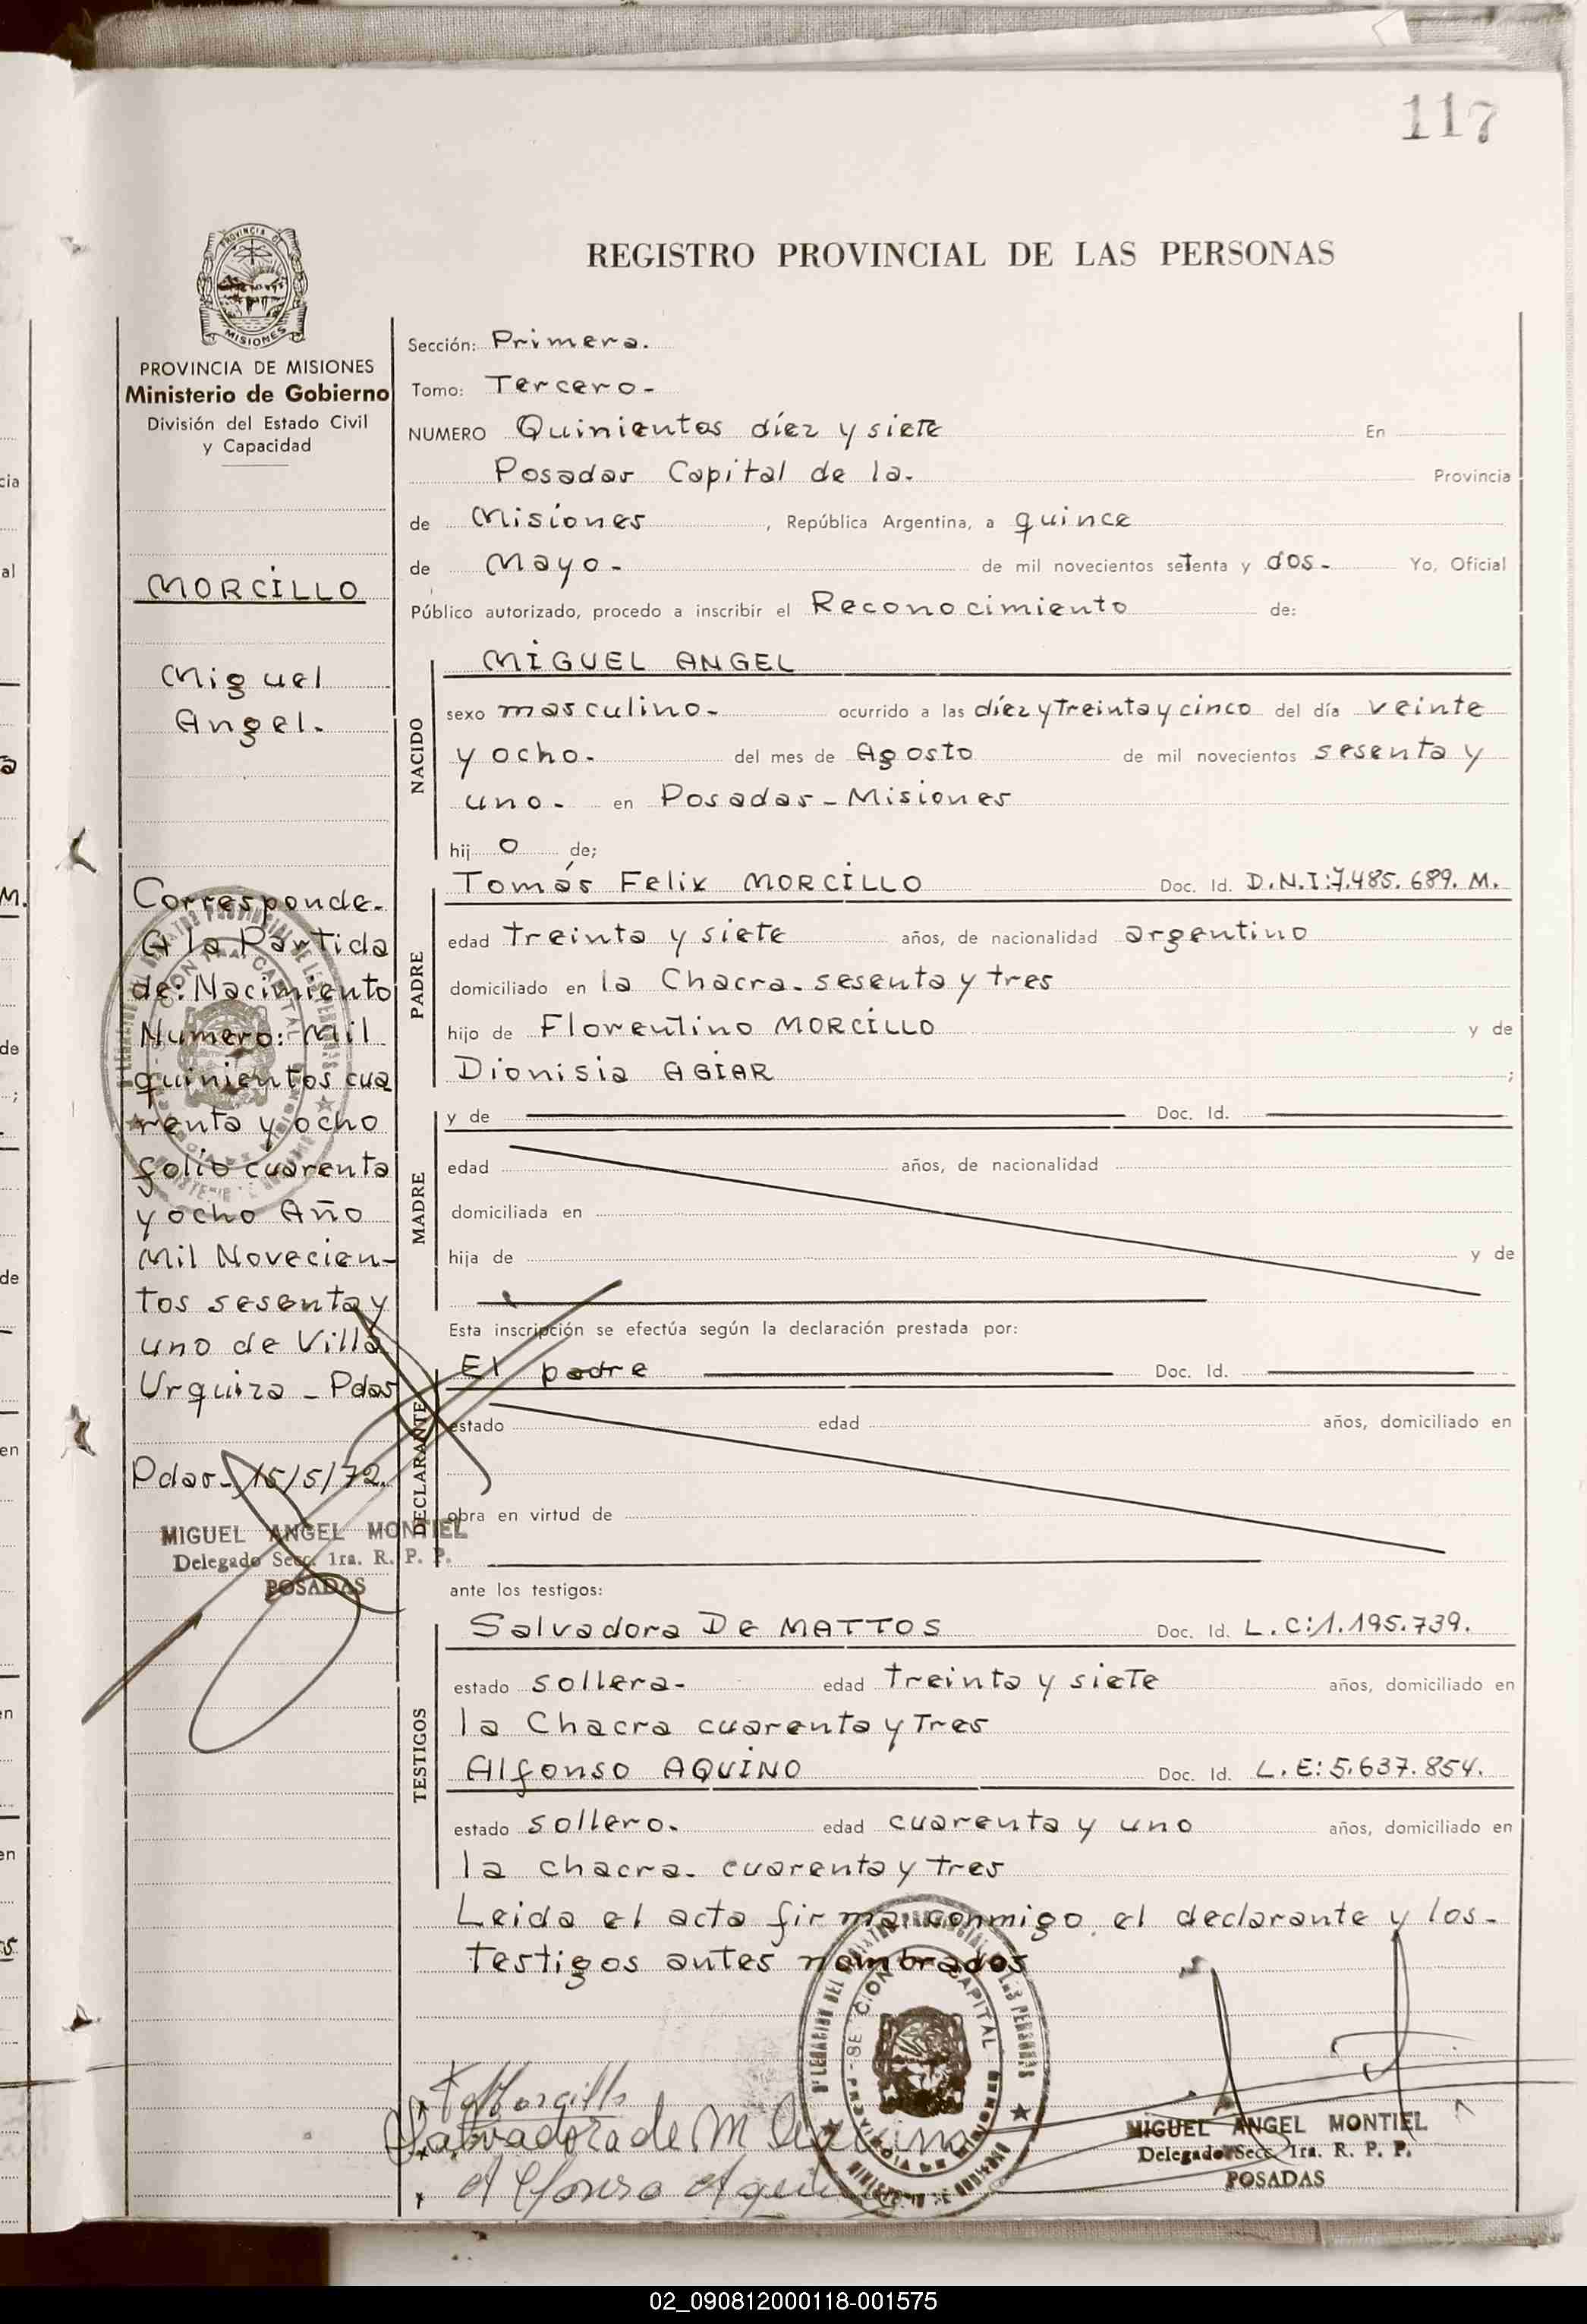 117
REGISTRO PROVINCIAL DE LAS PERSONAS
MISIONES
PROVINCIA DE MISIONES
Ministerio de Gobierno
División del Estado Civil
y Capacidad
MORCILLO
Miguel
Angel.
Corresponde-
A la Partida
de: Nacimiento
Numero: Mil
quinientos cua
renta y ocho
folio cuarenta
y ocho Año
Mil Novecien-
tos sesenta y
uno de Villa
Urquiza - Pdas
Pdas- 15/5/72.
MIGUEL ANGEL MONTIEL
Delegado Secc. 1ra. R. P. P.
POSADAS
Sección: Primera.
Tomo: Tercero-
NUMERO Quinientos díez y siete En
Posadas Capital de la. Provincia
de Misiones , República Argentina, a quince
de Mayo- de mil novecientos setenta y dos- Yo, Oficial
Público autorizado, procedo a inscribir el Reconocimiento de:
NACIDO
MIGUEL ANGEL
sexo masculino- ocurrido a las díez y treinta y cinco del día veinte
y ocho- del mes de Agosto de mil novecientos sesenta y
uno- en Posadas-Misiones
hij o de;
PADRE
Tomás Felix MORCILLO Doc. Id. D.N.I:7.485.689. M.
edad treinta y siete años, de nacionalidad argentino
domiciliado en la Chacra. sesenta y tres
hijo de Florentino MORCILLO y de
Dionisia AGIAR ;
MADRE
y de Doc. Id.
edad años, de nacionalidad
domiciliada en
hija de y de
Esta inscripción se efectúa según la declaración prestada por:
DECLARANTE
El padre Doc. Id.
estado edad años, domiciliado en
obra en virtud de
ante los testigos:
TESTIGOS
Salvadora De MATTOS Doc. Id. L.C:1.195.739.
estado soltera- edad treinta y siete años, domiciliado en
la Chacra cuarenta y tres
Alfonso AQUINO Doc. Id. L.E:5.637.854.
estado soltero. edad cuarenta y uno años, domiciliado en
la chacra. cuarenta y tres
Leida el acta firma conmigo el declarante y los-
testigos antes nombrados
Morcillo
Salvadora de M
Alfonso
MIGUEL ANGEL MONTIEL
Delegado Secc. 1ra. R. P. P.
POSADAS
02_090812000118-001575